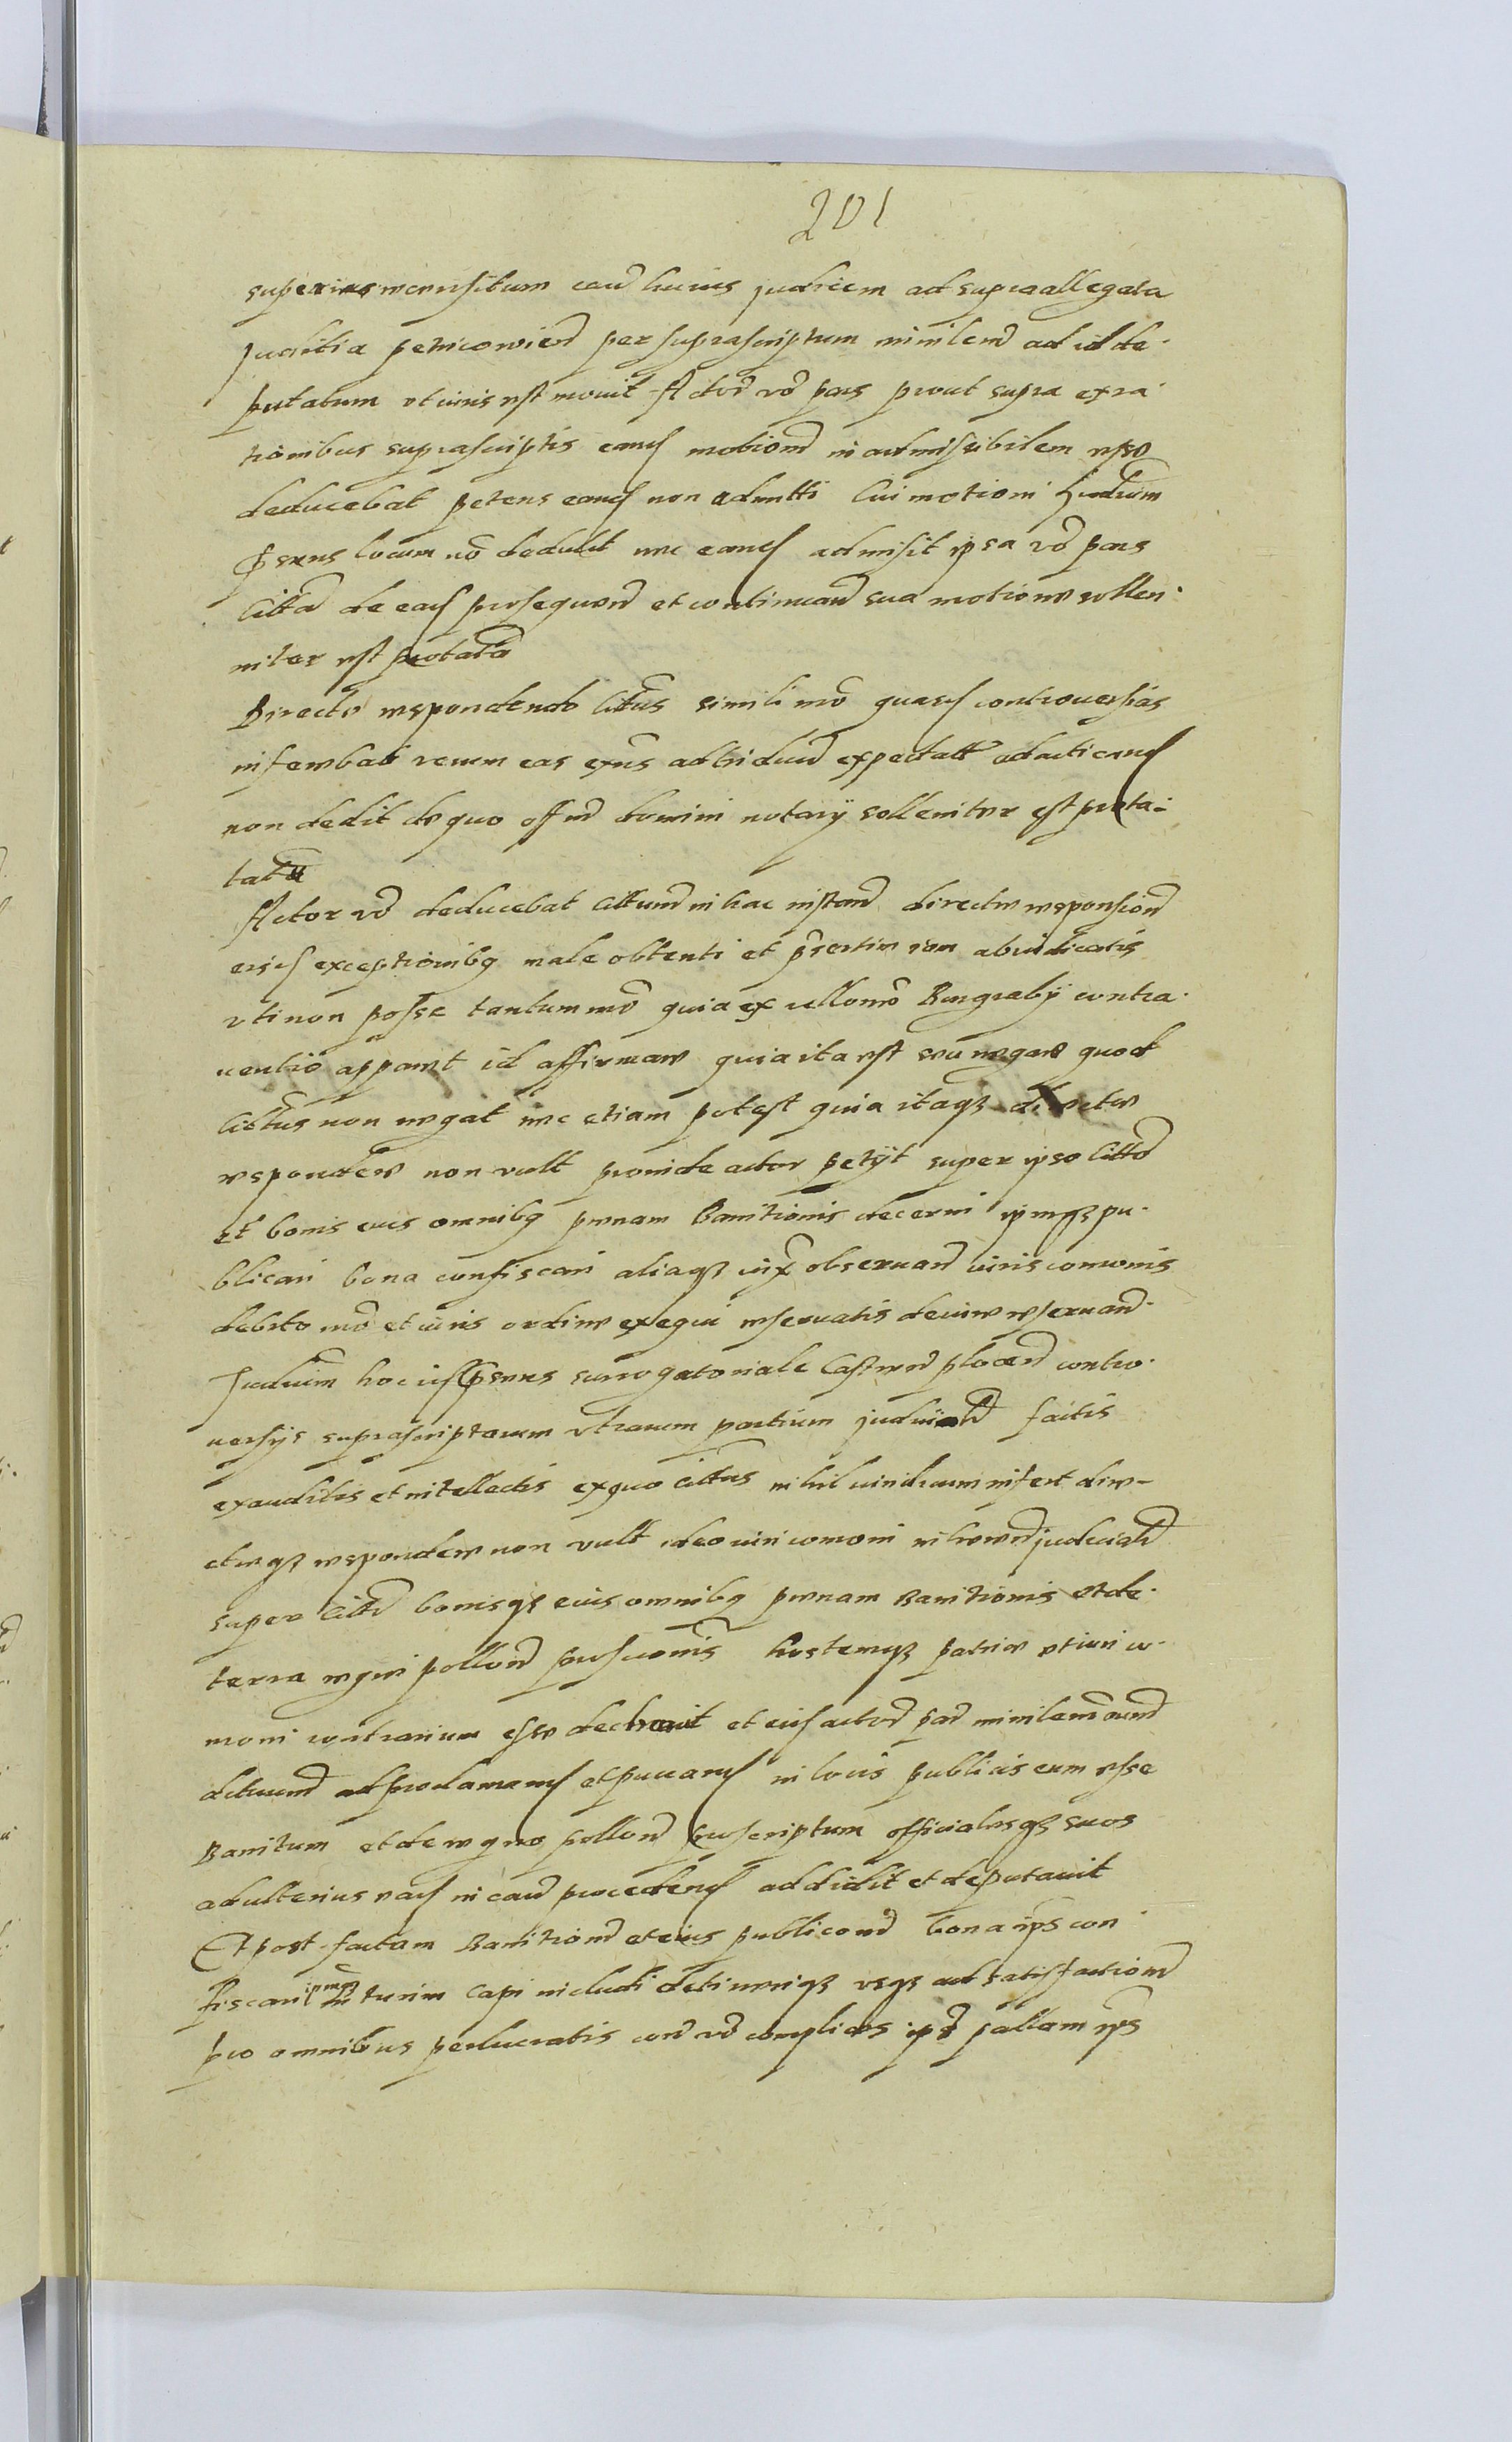 201
superius recensitum cau huius judicem ad supraallegata
juditia petricouien per suprascriptum ministeria ad id de
putatum ut iuris est mouit Actor vo pars prout supra ex ra
tionibus suprascriptis eand motiom inadmissibilem esse
deducebat petens eand non admitti Cui motioni Judicium
pens locum no dedit nec eand admisit ipsa vo pars
Citta de ead prosequen et continuan sua motione sollen
niter est protata
Directe respondendo Cittus simili mo quasd controuersias
inferebat verum eas exns ad triduu expectatt ad acticand
non dedit de quo offm domini notarij sollenniter est prota
tatu
Actor vo deducebat Cittum in hac instan directe respension
eisd exceptionibq male obtenti et psertim iam abiudicatis
uti non posse tantummo quia ex ullo mo Burgrabij contra
uentio apparet id affirmare quia ita est seu negare quod
Cittus non negat nec etiam potest quia itaqz directe
respondere non vult proinde actor petijt super ipso Citto
et bonis eius omnibq penam Banitionis decerni ipmqz pu
blicari bona confiscari aliaqz observan iuris comunis
debito mo et iuris ordine exequi reseruatis de iure reseruan
Judicium hoc pens surrogatoriale Castren contro
uersijs suprascriptarum utrarum partium judicial factis
exauditis et intellectis ex quo Cittus nihil iuridicum infert dire
cteqz respondere non vult ideo iuri comoni inherend judicial
super Citto bonisqz eius omnibq penam Banitionis et de
terra regni pollon proscriptionis hostemqz patrie et iuri co
moni contrarium esse decreuit et eid actor par
ad proclamand et puocand in locis publicis eum esse
Banitum et de regno pollon proscriptum officialesqz suos
ad ulterius ead in cau procedend addidit et deputauit
Et post factam Banitiom et eius publicaom bona ips con
fiscari ipmqz in turrim capi includi detineriqz usqz ad satisfactiom
pro omnibus perlucratis complices ips